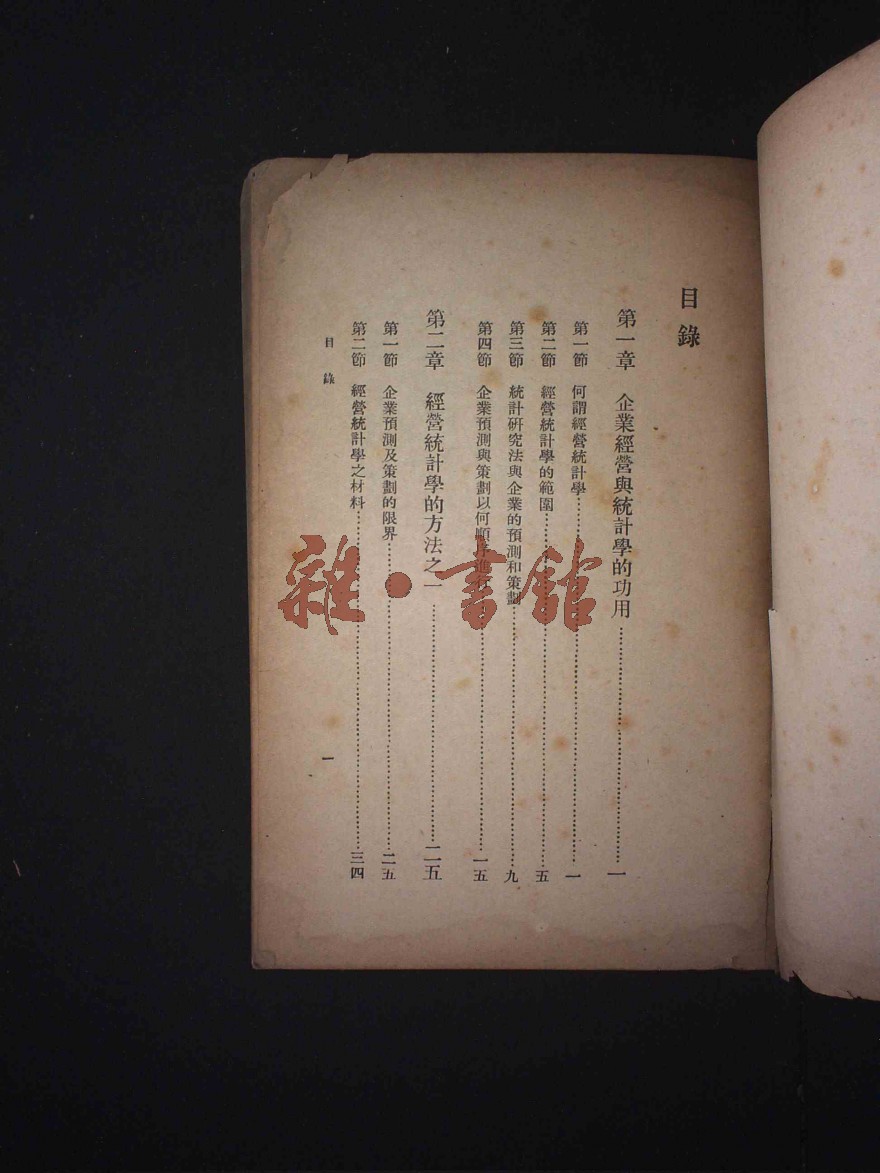 目錄
第一章 企業經營與統計學的功用……………………一
第一節 何謂經營統計學……………………一
第二節 經營統計學的範圍……………………五
第三節 統計研究法與企業的預測和策劃……………………九
第四節 企業預測與策劃以何順序進行……………………一五
第二章 經營統計學的方法之一……………………二五
第一節 企業預測及策劃的限界……………………二五
第二節 經營統計學之材料……………………三四
目錄
一
雜·書館